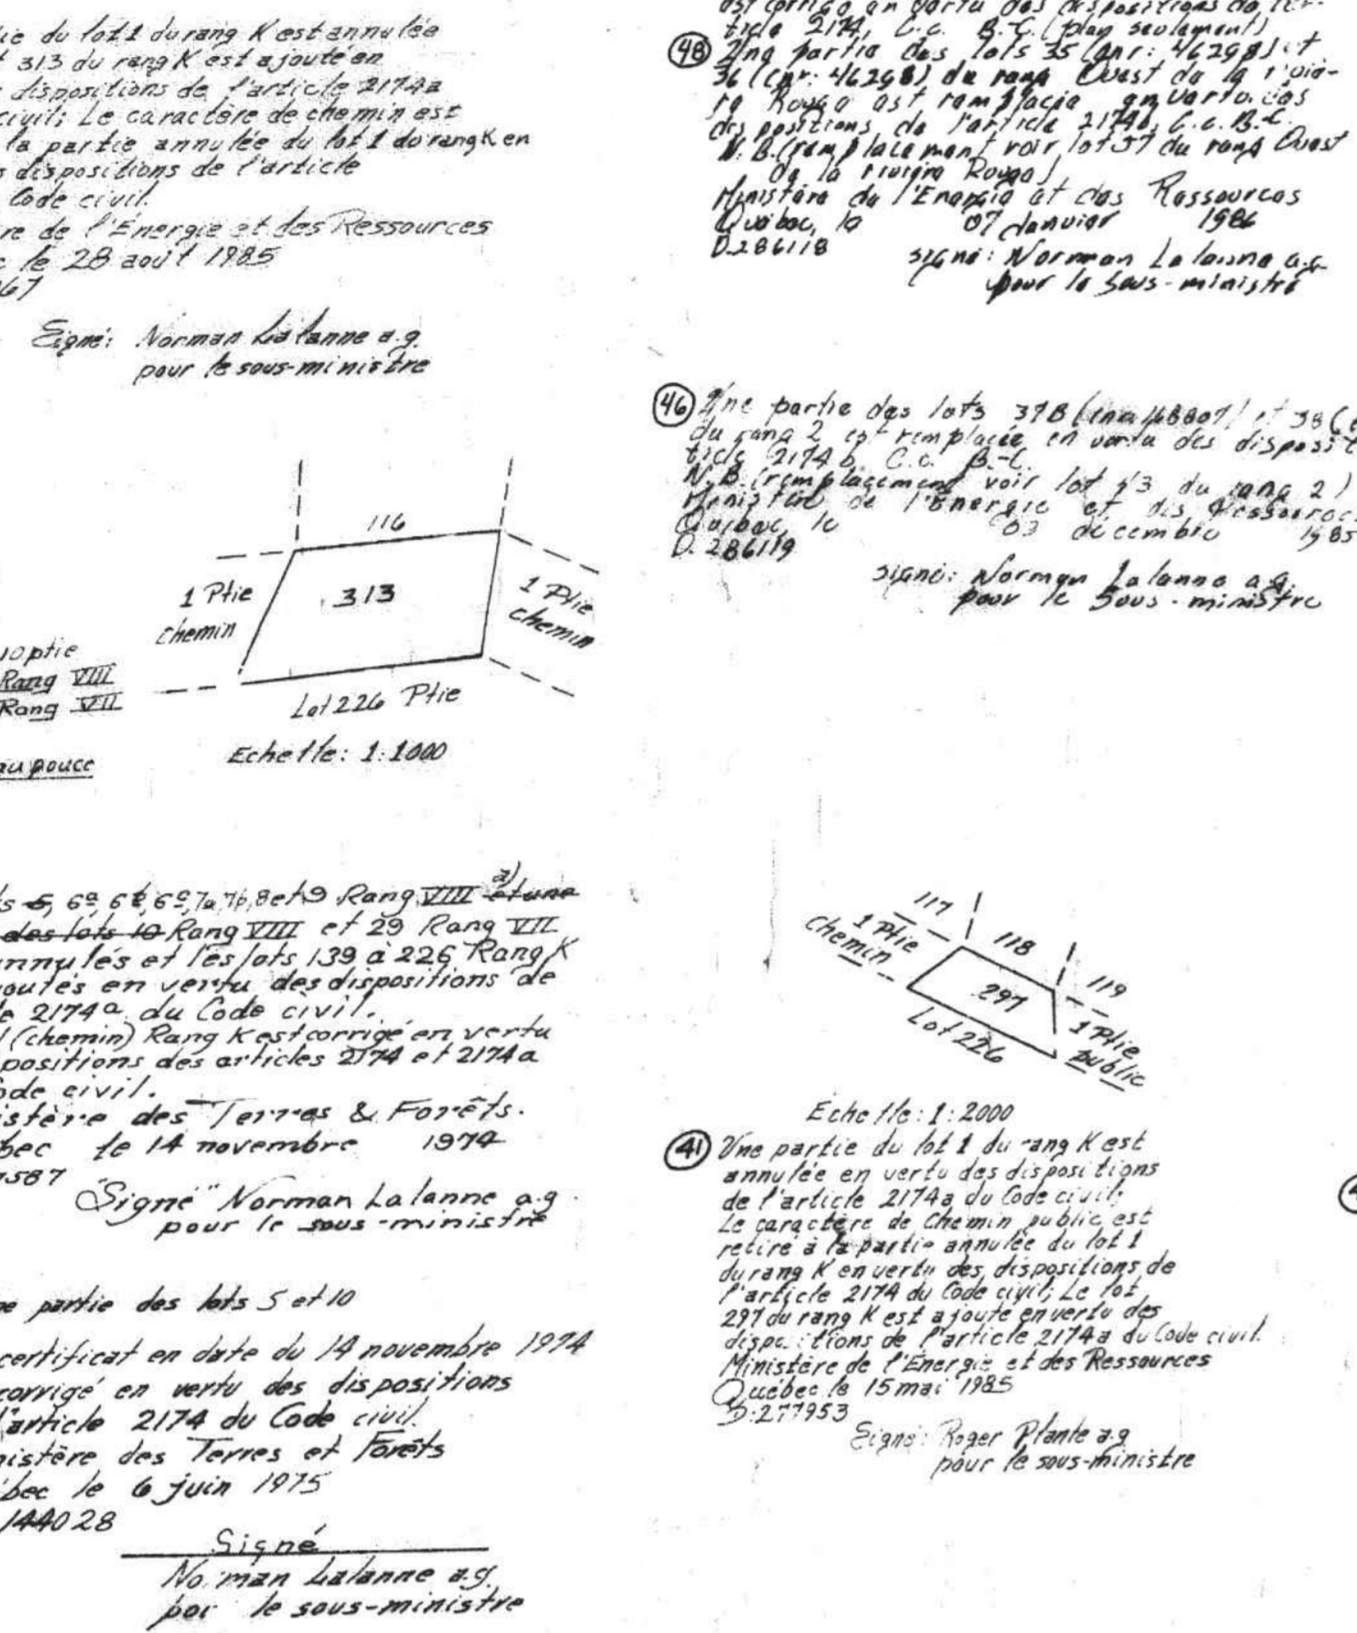 ie du lot 1 du rang K est annulée
313 du rang K est ajouté en
dispositions de l'article 2174a
civil; Le caractère de chemin est
la partie annulée du lot 1 du rang K en
s dispositions de l'article
Code civil.
re de l'Énergie et des Ressources
c le 28 août 1985
67
Signé: Norman Lalanne a.g.
pour le sous-ministre
116
1 Ptie
chemin
313
1 Ptie
chemin
10 ptie
Rang VIII
Rang VII
Lot 226 Ptie
Echelle: 1:1000
au pouce
a)
ts 5, 6a, 6b, 6c, 7a, 7b, 8 et 9 Rang VIII et une
des lots 10 Rang VIII et 29 Rang VII
nnulés et les lots 139 à 226 Rang K
outés en vertu des dispositions de
e 2174a du Code civil.
1 (chemin) Rang K est corrigé en vertu
positions des articles 2174 et 2174a
ode civil.
istère des Terres & Forêts.
bec le 14 novembre 1974
587
"Signé" Norman Lalanne a.g.
pour le sous-ministre
ne partie des lots 5 et 10
certificat en date du 14 novembre 1974
corrigé en vertu des dispositions
l'article 2174 du Code civil.
nistère des Terres et Forêts
bec le 6 juin 1975
144028
Signé
No man Lalanne a.g.
por le sous-ministre
est corrigé en vertu des dispositions de l'ar-
ticle 2174, C.c. B.-C. (plan seulement)
48 Une partie des lots 35 (enr: 46298) et
36 (enr: 46298) du rang Ouest de la riviè-
re Rouge est remplacée en vertu des
dispositions de l'article 2174b, C.c. B.-C.
N.B. (remplacement voir lot 57 du rang Ouest
de la rivière Rouge)
Ministère de l'Énergie et des Ressources
Québec, le 07 janvier 1986
D.286118
signé: Norman Lalanne a.g.
pour le sous-ministre
46 Une partie des lots 37B et 38 (e
du rang 2 est remplacée en vertu des disposit
ticle 2174b C.c. B.-C.
N.B. (remplacement voir lot 43 du rang 2)
Ministère de l'Énergie et des Ressourc
Québec, le 03 décembre 1985
D.286119
signé: Norman Lalanne a.g.
pour le Sous-ministre
117
1 Ptie
chemin
118
297
119
Lot 226
1 Ptie
public
Echelle: 1:2000
41 Une partie du lot 1 du rang K est
annulée en vertu des dispositions
de l'article 2174a du Code civil;
Le caractère de Chemin public est
retiré à la partie annulée du lot 1
du rang K en vertu des dispositions de
l'article 2174 du Code civil; Le lot
297 du rang K est ajouté en vertu des
dispositions de l'article 2174a du Code civil.
Ministère de l'Énergie et des Ressources
Québec le 15 mai 1985
D:277953
Signé: Roger Plante a.g
pour le sous-ministre